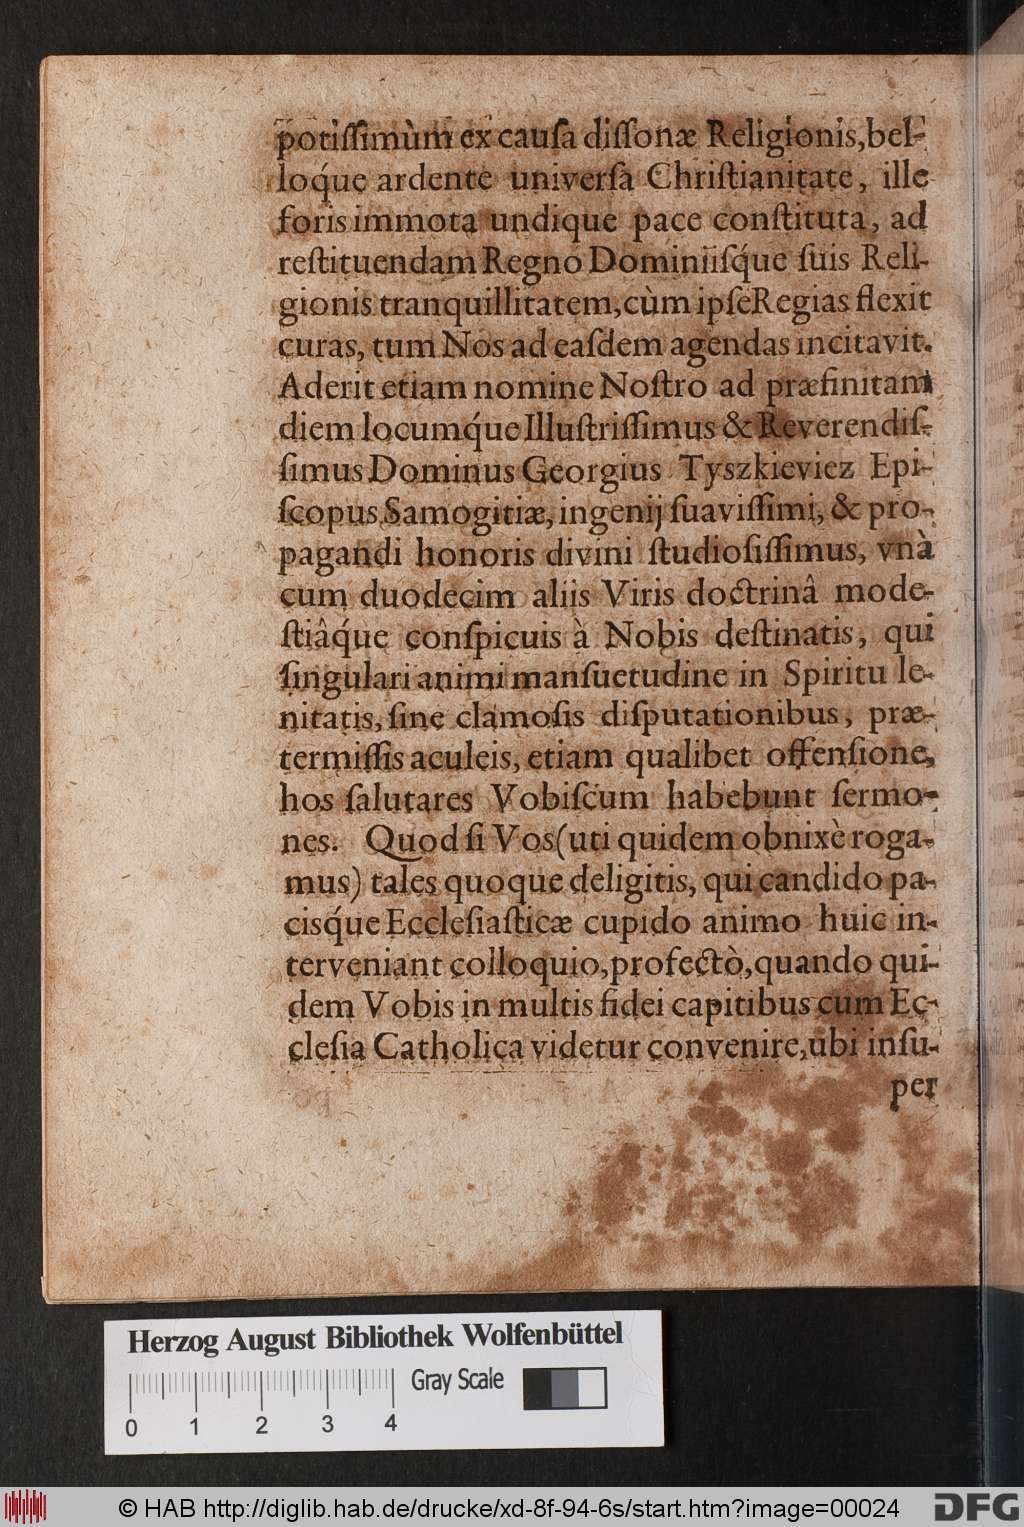 potiſſimùm ex cauſa diſſonæ Religionis, bel-
loq́ue ardente universâ Chriſtianitate, ille
foris immota undique pace conſtituta, ad
reſtituendam Regno Dominiisq́ue ſuis Reli-
gionis tranquillitatem, cùm ipſe Regias flexit
curas, tum Nos ad eaſdem agendas incitavit.
Aderit etiam nomine Noſtro ad præfinitam
diem locumq́ue Illuſtriſſimus & Reverendiſ-
ſimus Dominus Georgius Tyszkieviez Epi-
ſcopus Samogitiæ, ingenij ſuaviſſimi, & pro-
pagandi honoris divini ſtudioſiſſimus, vnà
cum duodecim aliis Viris doctrinâ mode-
ſtiâq́ue conſpicuis à Nobis deſtinatis, qui
ſingulari animi manſuetudine in Spiritu le-
nitatis, ſine clamoſis diſputationibus, præ-
termiſſis aculeis, etiam qualibet offenſione,
hos ſalutares Vobiſcum habebunt ſermo-
nes. Quod ſi Vos (uti quidem obnixè roga-
mus) tales quoque deligitis, qui candido pa-
cisq́ue Eccleſiaſticæ cupido animo huic in-
terveniant colloquio, profectò, quando qui-
dem Vobis in multis fidei capitibus cum Ec-
cleſia Catholica videtur convenire, ubi inſu-
per
Herzog August Bibliothek Wolfenbüttel
Gray Scale
0 1 2 3 4
© HAB http://diglib.hab.de/drucke/xd-8f-94-6s/start.htm?image=00024
DFG